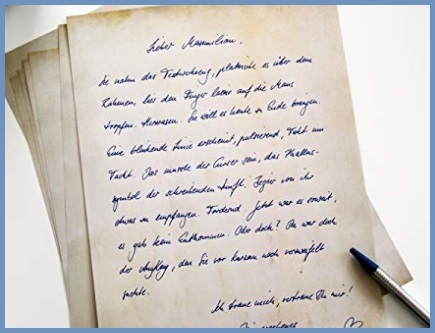 Lieber Maximilian,
Sie nahm das
über dem
Rahmen, los den Finger auf die Maus
tropfen. Sie will es heute zu Ende bringen.
Eine blinkende Linie erscheint, pulsierend, Takt um
Takt. Das musste der Cursor sein, das Phallus-
symbol der schreibenden Zunft. Gegier von ihr
etwas zu empfangen. Fordernd. Jetzt war es soweit,
es gab kein Entkommen. Oder doch? Da war doch
der Anfang, den Sie vor kurzem noch verzweifelt
suchte.
Ich traue mich, vertraue Du mir!